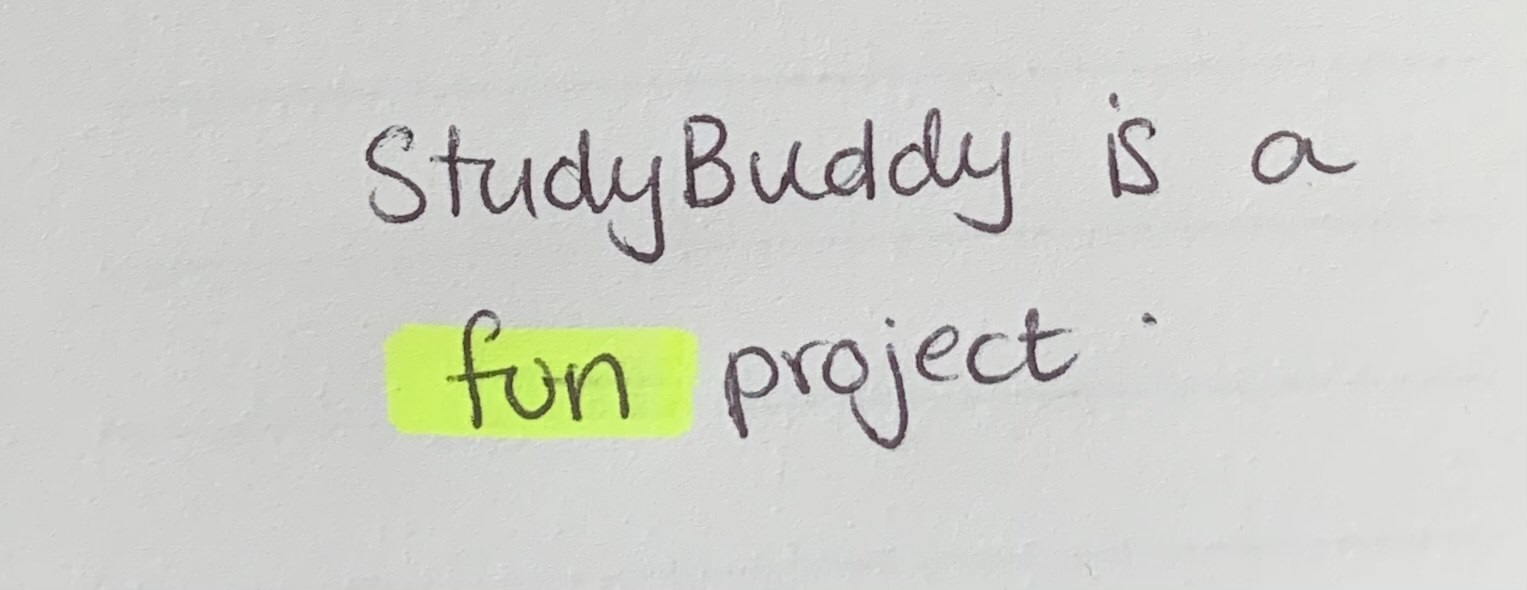 StudyBuddy is a
fun project.